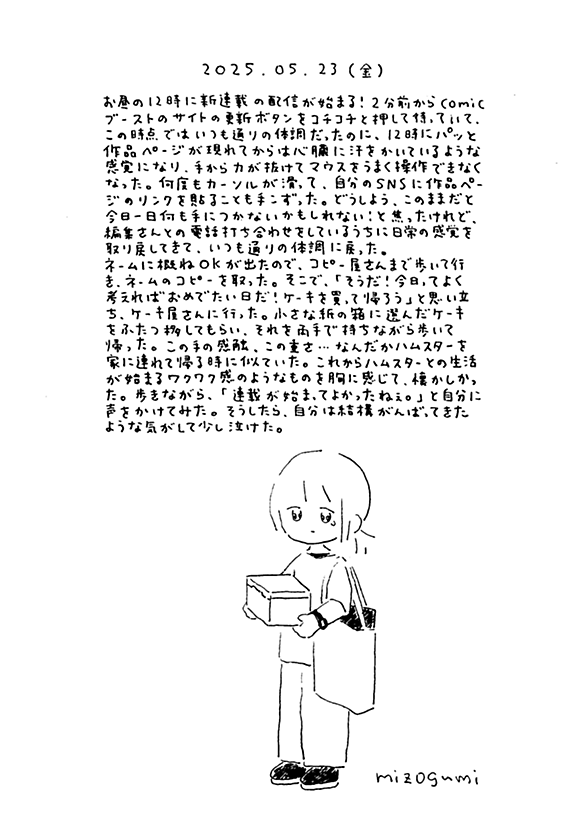 2025.05.23(金)
お昼の12時に新連載の配信が始まる!2分前からcomic
ブーストのサイトの更新ボタンをコチコチと押して待っていて、
この時点ではいつも通りの体調だったのに、12時にパッと
作品ページが現れてからは心臓に汗をかいているような
感覚になり、手から力が抜けてマウスをうまく操作できなく
なった。何度もカーソルが滑って、自分のSNSに作品ペー
ジのリンクを貼ることも手こずった。どうしよう、このままだと
今日一日何も手につかないかもしれない!と焦ったけれど、
編集さんとの電話打ち合わせをしているうちに日常の感覚を
取り戻してきて、いつも通りの体調に戻った。
ネームに概ねOKが出たので、コピー屋さんまで歩いて行
き、ネームのコピーを取った。そこで、「そうだ!今日ってよく
考えればおめでたい日だ!ケーキを買って帰ろう」と思い立
ち、ケーキ屋さんに行った。小さな紙の箱に選んだケーキ
をふたつ梱してもらい、それを両手で持ちながら歩いて
帰った。この手の感触、この重さ…なんだかハムスターを
家に連れて帰る時に似ていた。これからハムスターとの生活
が始まるワクワク感のようなものを胸に感じて、懐かしかっ
た。歩きながら、「連載が始まってよかったねぇ。」と自分に
声をかけてみた。そうしたら、自分は結構がんばってきた
ような気がして少し泣けた。
mizogumi